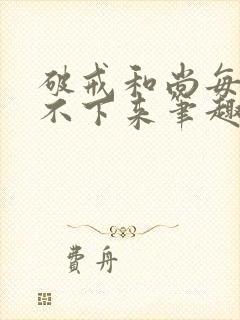 破戒和尚每
不下来笔趣
费舟